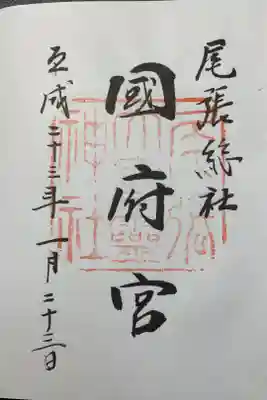 尾張総社
國府宮
平成二十三年一月二十三日